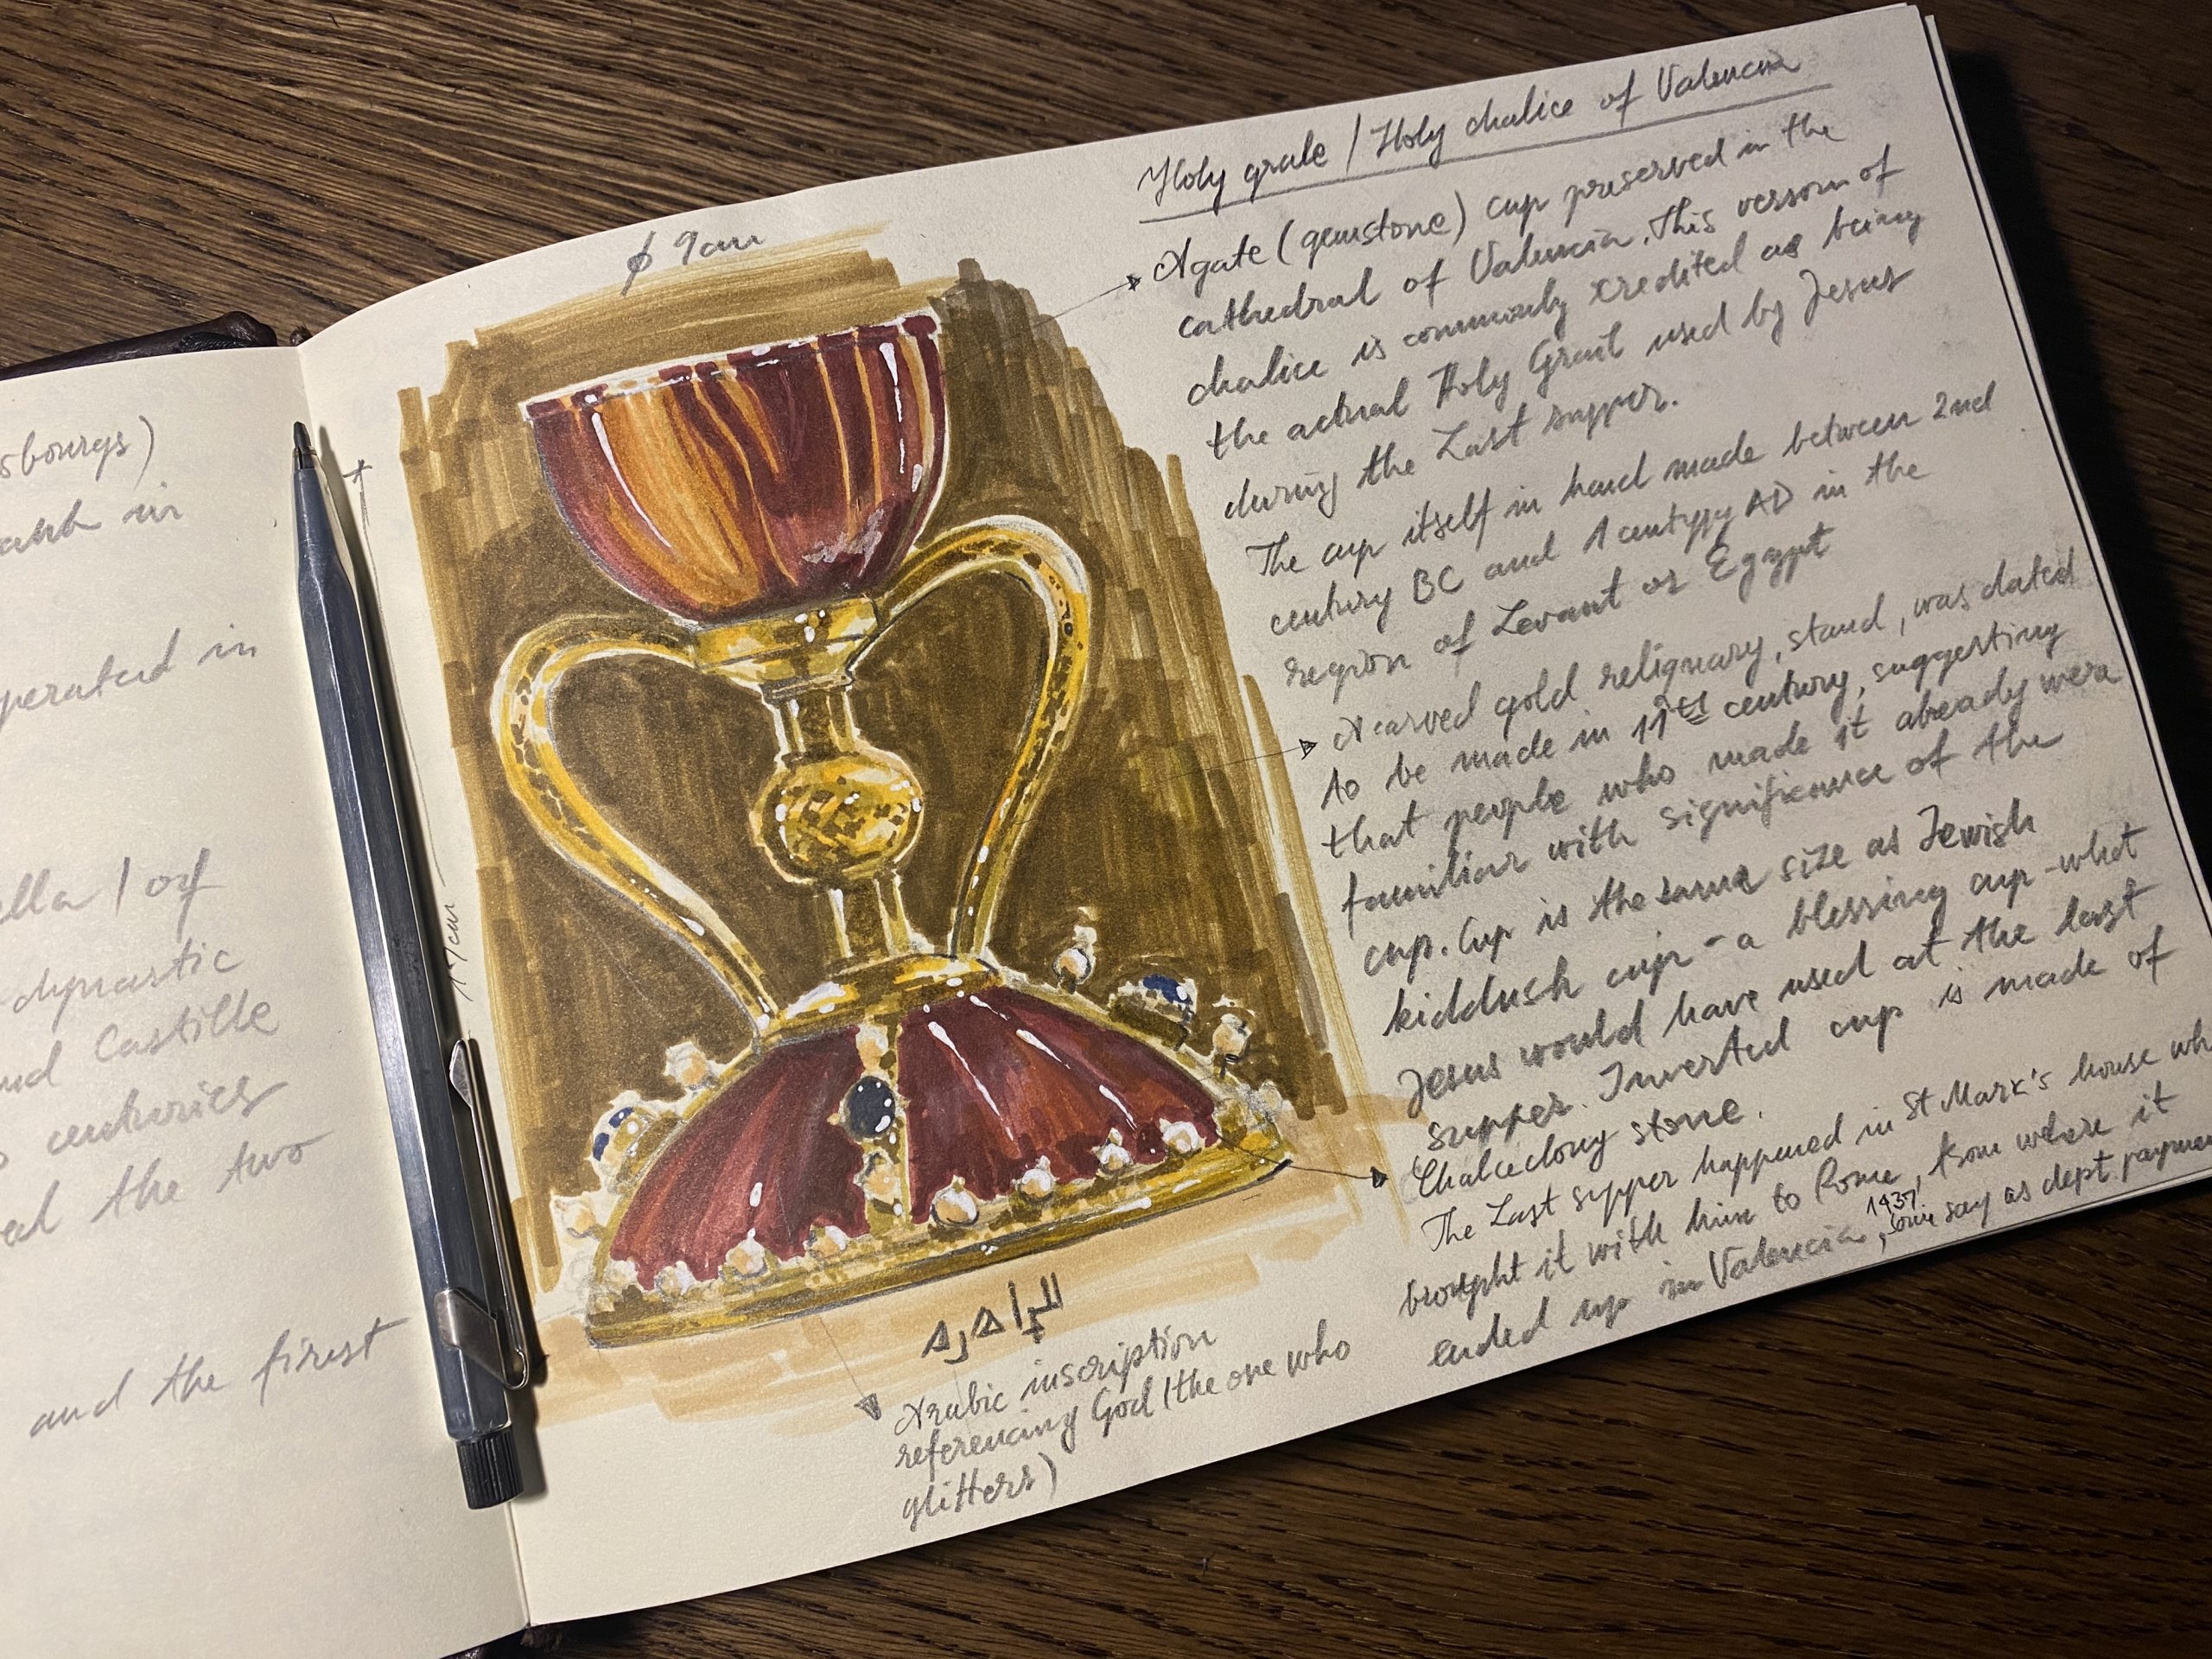 sbourgs)
in
perated in
ella / of
dynastic
nd Castille
centuries
ed the two
and the first
ϕ 9cm
17cm
Holy grale / Holy chalice of Valencia
Agate (gemstone) cup preserved in the
cathedral of Valencia. This verson of
chalice is commonly credited as being
the actual Holy Grail used by Jesus
during the Last supper.
The cup itself in hand made between 2nd
century BC and 1 centypy AD in the
region of Levant or Egypt
A carved gold reliquary, stand, was dated
to be made in 11th century, suggesting
that people who made it already were
familiar with significance of the
cup. Cup is the same size as Jewish
kiddush cup - a blessing cup - what
Jesus would have used at the last
supper. Inverted cup is made of
Chalcedony stone.
The Last supper happened in St Mark's house who
brought it with him to Rome, from where it
ended up in Valencia, 1437, some say as dept payment
للزاهره
Arabic inscription
referencing God (the one who
glitters)